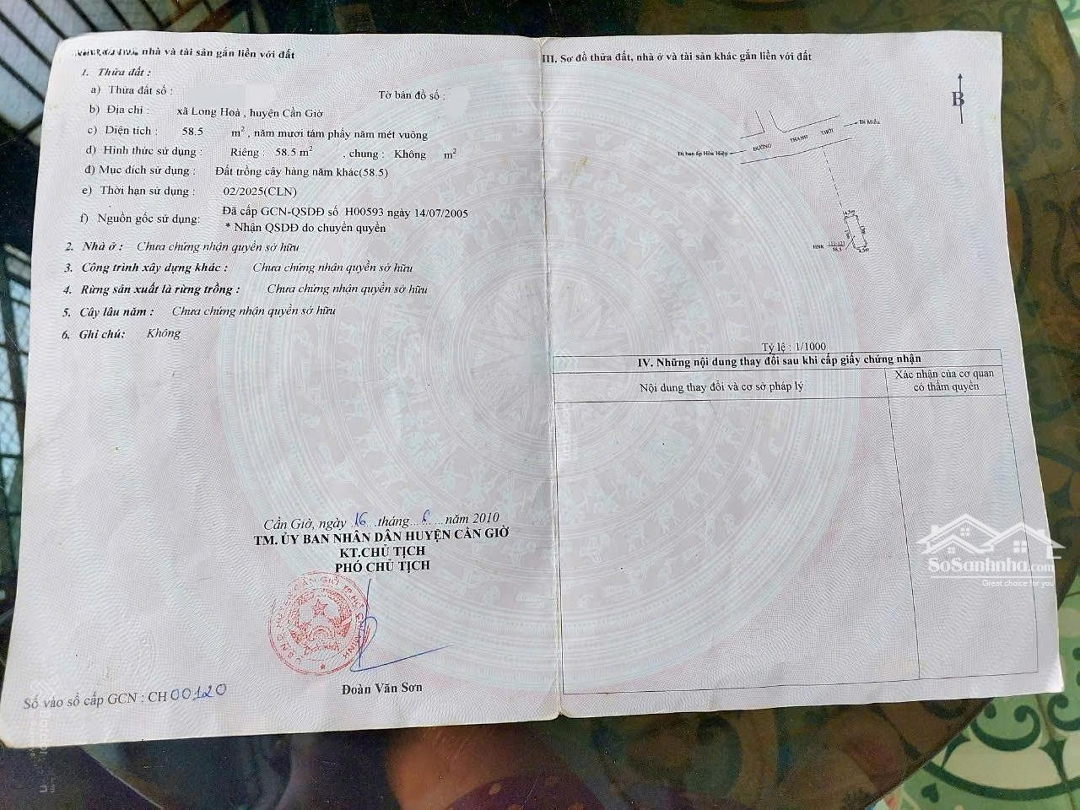 nhà và tài sản gắn liền với đất
1. Thửa đất :
a) Thửa đất số : Tờ bản đồ số :
b) Địa chỉ : xã Long Hoà , huyện Cần Giờ
c) Diện tích : 58.5 m², năm mươi tám phẩy năm mét vuông
d) Hình thức sử dụng : Riêng : 58.5 m² , chung : Không m²
đ) Mục đích sử dụng : Đất trồng cây hàng năm khác(58.5)
e) Thời hạn sử dụng : 02/2025(CLN)
f) Nguồn gốc sử dụng: Đã cấp GCN-QSDĐ số H00593 ngày 14/07/2005
* Nhận QSDĐ do chuyển quyền
2. Nhà ở : Chưa chứng nhận quyền sở hữu
3. Công trình xây dựng khác : Chưa chứng nhận quyền sở hữu
4. Rừng sản xuất là rừng trồng : Chưa chứng nhận quyền sở hữu
5. Cây lâu năm : Chưa chứng nhận quyền sở hữu
6. Ghi chú: Không
Cần Giờ, ngày 16 tháng 6 năm 2010
TM. ỦY BAN NHÂN DÂN HUYỆN CẦN GIỜ
KT.CHỦ TỊCH
PHÓ CHỦ TỊCH
Đoàn Văn Sơn
Số vào sổ cấp GCN : CH 00120
III. Sơ đồ thửa đất, nhà ở và tài sản khác gắn liền với đất
B
ĐƯỜNG THẠNH THỚI
Đi ban ấp Hòa Hiệp
Tỷ lệ : 1/1000
IV. Những nội dung thay đổi sau khi cấp giấy chứng nhận
Nội dung thay đổi và cơ sở pháp lý
Xác nhận của cơ quan
có thẩm quyền
SoSanhnha.com
Great choice for you